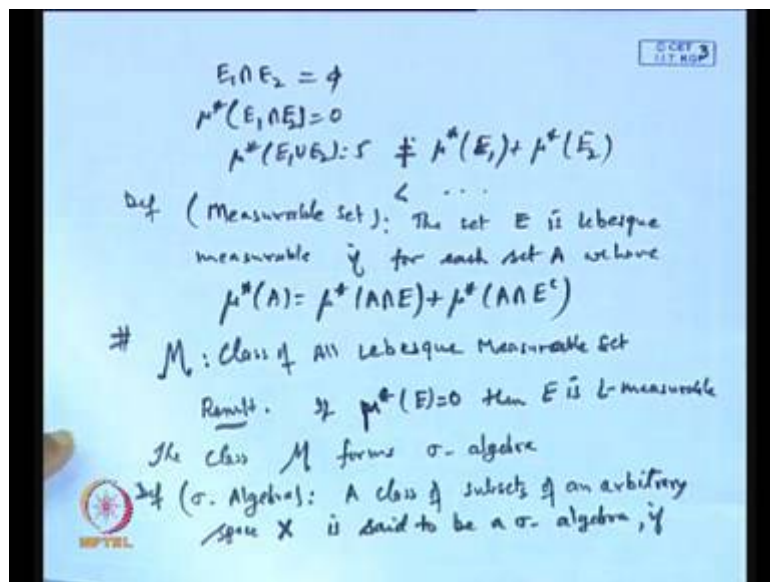 © CET
I.I.T. KGP
3
E₁∩E₂ = ϕ
μ*(E₁∩E₂)=0
μ*(E₁∪E₂)=5 ≠ μ*(E₁)+ μ*(E₂)
< ...
Def (Measurable Set): The set E is lebesgue
measurable if for each set A we have
μ*(A)= μ*(A∩E)+ μ*(A∩Eᶜ)
# M: Class of All Lebesgue Measurable Set
Result. If μ*(E)=0 then E is L-measurable
The class M forms σ- algebra
Def (σ. Algebra): A class of subsets of an arbitrary
space X is said to be a σ- algebra, if
NPTEL